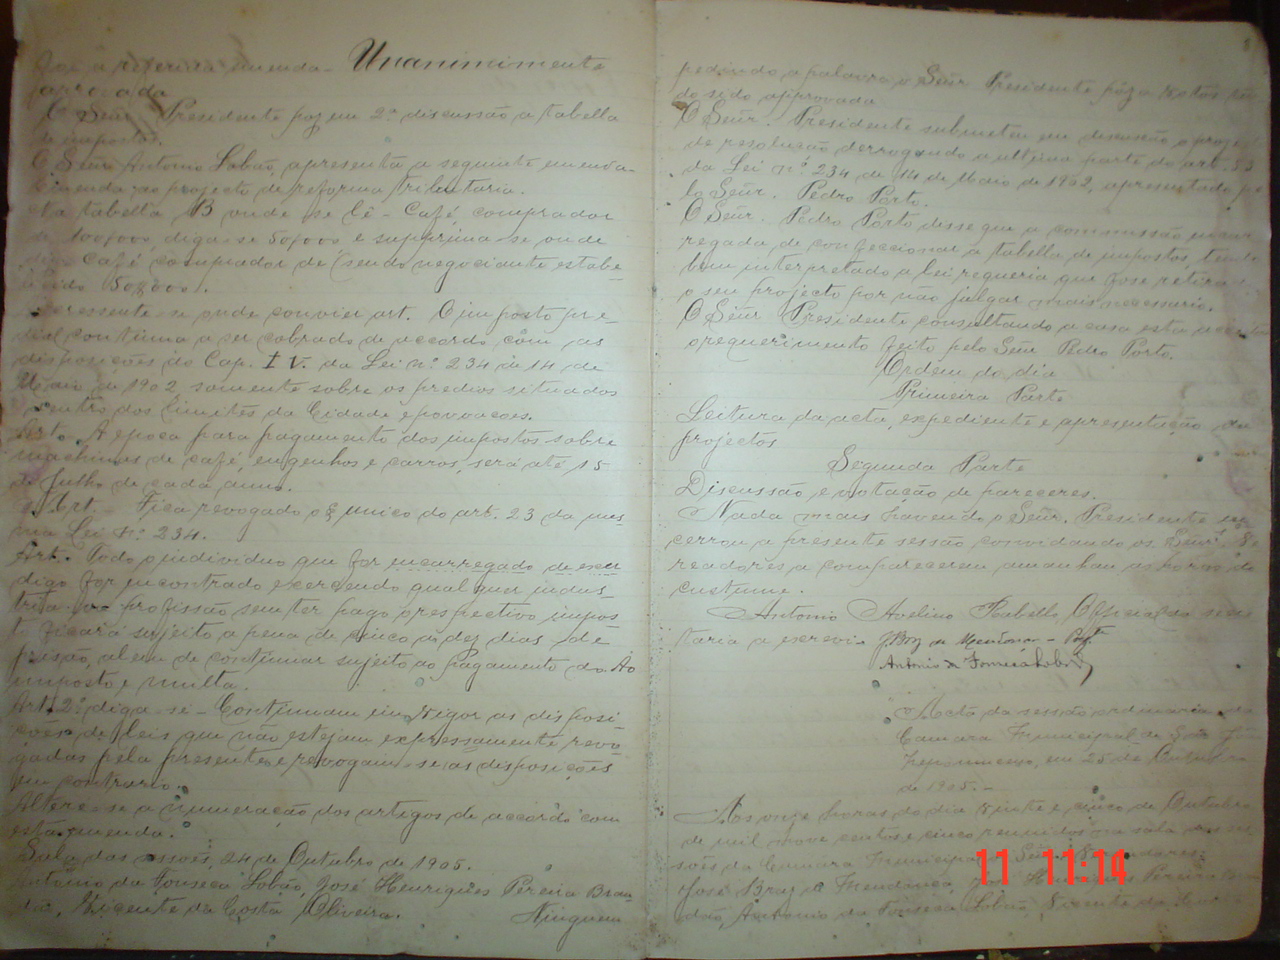 foi a referida emenda - Unanimimente
aprovada
O Señr Presidente poz em 2ª discussão a tabella
de impostos.
O Señr Antonio Lobão, apresentã a seguinte emenda.
Emenda ao projecto de reforma tributaria.
Na tabella B onde se lê - Café, comprador
de 100$000 diga-se 50$000 e suprima-se onde
diz Café comprador de (sendo negociante estabe-
lecido 50$000).
Accressente-se onde convier art. O imposto pre-
dial continua a ser cobrado de accordo com as
disposições do Cap. IV. da Lei nº 234 de 14 de
Maio de 1902 somente sobre os predios situados
dentro dos limites da Cidade e povoações.
Art. A epoca para pagamento dos impostos sobre
machinas de café, engenhos e carros, será até 15
de Julho de cada anno.
Art. - Fica revogado o § unico do art. 23 da mes-
ma Lei nº 234.
Art. Todo o individuo que for encarregado de
digo for encontrado exercendo qualquer indus-
tria ou profissão sem ter pago o respectivo impos-
to ficará sujeito a pena de cinco a dez dias de
prisão, alem de continuar sujeito ao pagamento do
imposto e multa.
Art. 2º diga-se - Continuam em vigor as disposi-
ções de leis que não estejam expressamente revo-
gadas pela presente e revogam-se as disposições
em contrario.
Altere-se a numeração dos artigos de accordo com
esta emenda.
Sala das sessões, 24 de Outubro de 1905.
Antonio da Fonseca Lobão, José Henriques Pereira Bran-
dão, Vicente da Costa Oliveira. Ninguem
8
pedindo a palavra o Señr Presidente pôz a votos
do sido approvada
O Señr. Presidente submeteu em discussão o projecto
de resolução derrogando a ultima parte do art.
da Lei nº 234 de 14 de Maio de 1902, apresentado pe-
lo Señr. Pedro Porto.
O Señr. Pedro Porto disse que a commissão encar-
regada de confeccionar a tabella de impostos, tendo
bem interpretado a lei requeria que fose retirado
o seu projecto por não julgar mais necessario.
O Señr Presidente consultando a casa esta
o requerimento feito pelo Señr Pedro Porto.
Ordem do dia
Primeira Parte
Leitura da acta, expediente e apresentação de
projectos
Segunda Parte
Discussão e votação de pareceres.
Nada mais havendo o Señr. Presidente en-
cerrou a presente sessão convidando os Señrs Ve-
readores a comparecerem amanhan as horas do
custume.
Antonio Avelino Rabello, Official da secre-
taria a escrevi. J. Braz de Mendonça - Presidente
Antonio da Fonseca Lobão
Acta da sessão ordinaria da
Camara Municipal de São João
Nepomuceno, em 25 de Outubro
de 1905.-
As onze horas do dia vinte e cinco de Outubro
de mil nove centos e cinco reunidos na sala das ses-
sões da Camara Municipal os Señrs Vereadores:
José Braz de Mendonça, José Henriques Pereira Bran-
dão, Antonio da Fonseca Lobão, Vicente da Costa
11 11:14